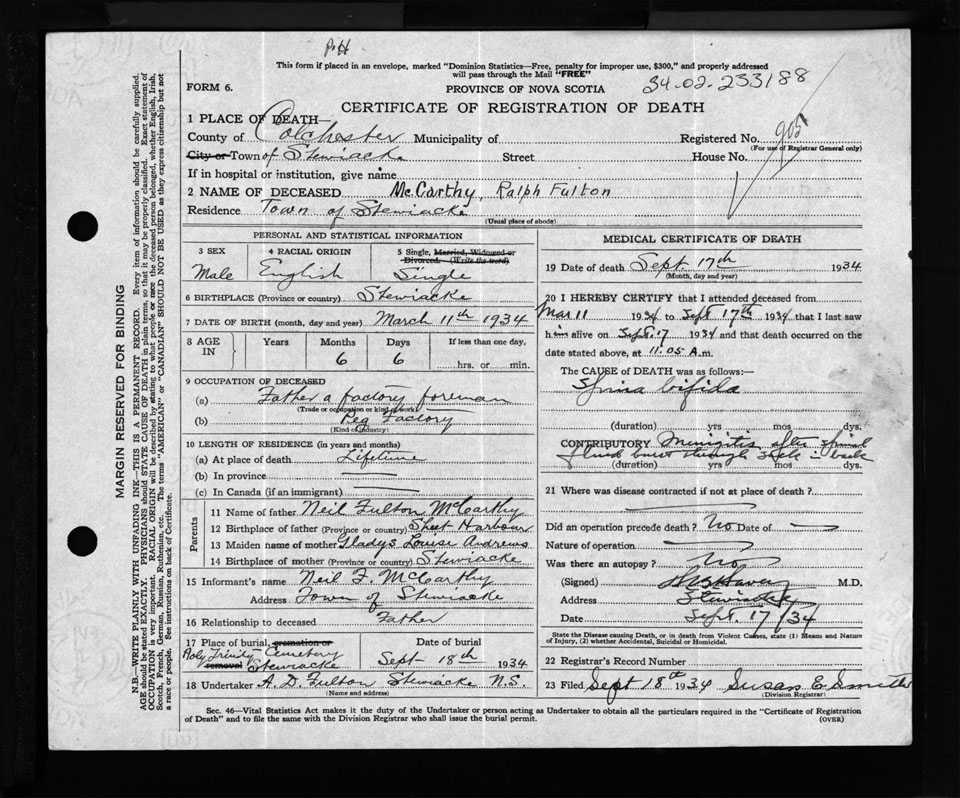 P.H
This form if placed in an envelope, marked "Dominion Statistics—Free, penalty for improper use, $300," and properly addressed
will pass through the Mail "FREE"
FORM 6.
PROVINCE OF NOVA SCOTIA
34.02.233188
CERTIFICATE OF REGISTRATION OF DEATH
1 PLACE OF DEATH—
County of Colchester Municipality of Registered No. 905
(For use of Registrar General only)
City or Town of Stewiacke Street House No.
If in hospital or institution, give name
2 NAME OF DECEASED McCarthy, Ralph Fulton
Residence Town of Stewiacke
(Usual place of abode)
PERSONAL AND STATISTICAL INFORMATION
3 SEX 4 RACIAL ORIGIN 5 Single, Married, Widowed or
Divorced. (Write the word)
Male English Single
6 BIRTHPLACE (Province or country) Stewiacke
7 DATE OF BIRTH (month, day and year) March 11th 1934
8 AGE IN Years Months Days If less than one day,
6 6 hrs. or min.
9 OCCUPATION OF DECEASED
(a) Father a factory foreman
(Trade or occupation or kind of work)
(b) Peg Factory
(Kind of industry)
10 LENGTH OF RESIDENCE (in years and months)
(a) At place of death Lifetime
(b) In province
(c) In Canada (if an immigrant)
Parents
11 Name of father Neil Fulton McCarthy
12 Birthplace of father (Province or country) Sheet Harbour
13 Maiden name of mother Gladys Louise Andrews
14 Birthplace of mother (Province or country) Stewiacke
15 Informant's name Neil F. McCarthy
Address Town of Stewiacke
16 Relationship to deceased Father
17 Place of burial, cremation or removal Date of burial
Holy Trinity Cemetery
Stewiacke Sept 18th 1934
18 Undertaker A. D. Fulton Stewiacke N.S.
(Name and address)
MEDICAL CERTIFICATE OF DEATH
19 Date of death Sept. 17th 1934
(Month, day and year)
20 I HEREBY CERTIFY that I attended deceased from
Mar 11 1934 to Sept 17th 1934 that I last saw
him alive on Sept. 17 1934 and that death occurred on the
date stated above, at 11.05 A.m.
The CAUSE of DEATH was as follows:—
Spina bifida
(duration) yrs mos dys.
CONTRIBUTORY Meningitis after spinal
fluid burst through sack in back
(duration) yrs mos dys.
21 Where was disease contracted if not at place of death?
Did an operation precede death? No Date of
Nature of operation
Was there an autopsy? No
(Signed) M.D.
Address Stewiacke
Date Sept. 17/34
State the Disease causing Death, or in death from Violent Causes, state (1) Means and Nature
of Injury, (2) whether Accidental, Suicidal or Homicidal.
22 Registrar's Record Number
23 Filed Sept 18th 1934 Susan E.
(Division Registrar)
Sec. 46—Vital Statistics Act makes it the duty of the Undertaker or person acting as Undertaker to obtain all the particulars required in the "Certificate of Registration
of Death" and to file the same with the Division Registrar who shall issue the burial permit.
(OVER)
MARGIN RESERVED FOR BINDING
N.B.—WRITE PLAINLY WITH UNFADING INK—THIS IS A PERMANENT RECORD. Every item of information should be carefully supplied.
AGE should be stated EXACTLY. PHYSICIANS should STATE CAUSE OF DEATH in plain terms, so that it may be properly classified. Exact statement of
OCCUPATION is very important. RACIAL ORIGIN will be described by stating to what people or race the deceased person belonged, whether English, Irish,
Scotch, French, German, Russian, Ruthenian, etc. The terms "AMERICAN" or "CANADIAN" SHOULD NOT BE USED as they express citizenship but not
a race or people. See instructions on back of Certificate.